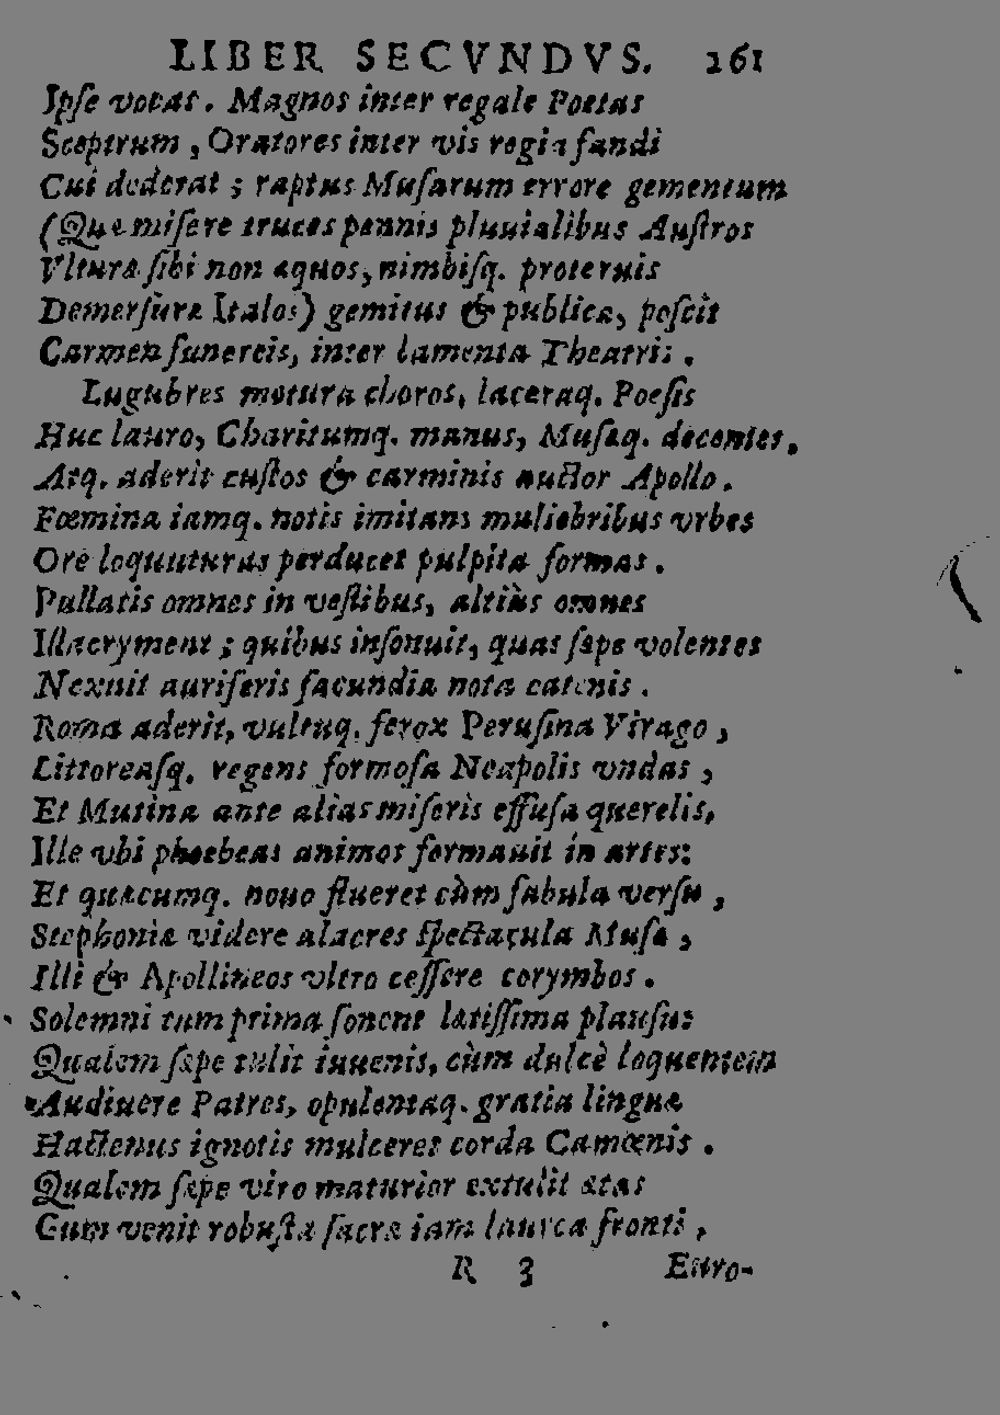 LIBER SECVNDVS. 261
Ipſe vocat. Magnos inter regale Poetas
Sceptrum, Oratores inter vis regia fandi
Cui dederat; raptus Muſarum errore gementum
(Quæ miſere truces pennis pluuialibus Auſtros
Vltura ſibi non æquos, nimbiſq. proteruis
Demerſura Italos) gemitus & publica, poſcit
Carmen funereis, inter lamenta Theatris.
Lugubres motura choros, laceraq. Poeſis
Huc lauro, Charitumq. manus, Muſæq. decentes,
Atq. aderit cuſtos & carminis auctor Apollo.
Fœmina iamq. notis imitans muliebribus vrbes
Ore loquuturas perducet pulpita formas.
Pullatis omnes in veſtibus, altiùs omnes
Illacryment; quibus inſonuit, quas ſæpe volentes
Nexuit auriferis facundia nota catenis.
Roma aderit, vultuq. ferox Peruſina Virago,
Littoreaſq. regens formoſa Neapolis vndas,
Et Mutina ante alias miſeris effuſa querelis,
Ille vbi phoebeas animos formauit in artes:
Et quæcumq. nouo flueret cùm fabula verſu,
Stephoniæ videre alacres ſpectacula Muſæ,
Illi & Apollineos vltro ceſſere corymbos.
Solemni tum prima ſonent lætiſſima plauſu:
Qualem ſæpe tulit iuuenis, cùm dulcè loquentem
Audiuere Patres, opulentaq. gratia linguæ
Hactenus ignotis mulceret corda Camœnis.
Qualem ſæpe viro maturior extulit ætas
Cum venit robuſta ſacræ iam laurea fronti,
R 3 Euro-